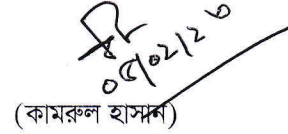 ০৫/০২/২৩
(কামরুল হাসান)